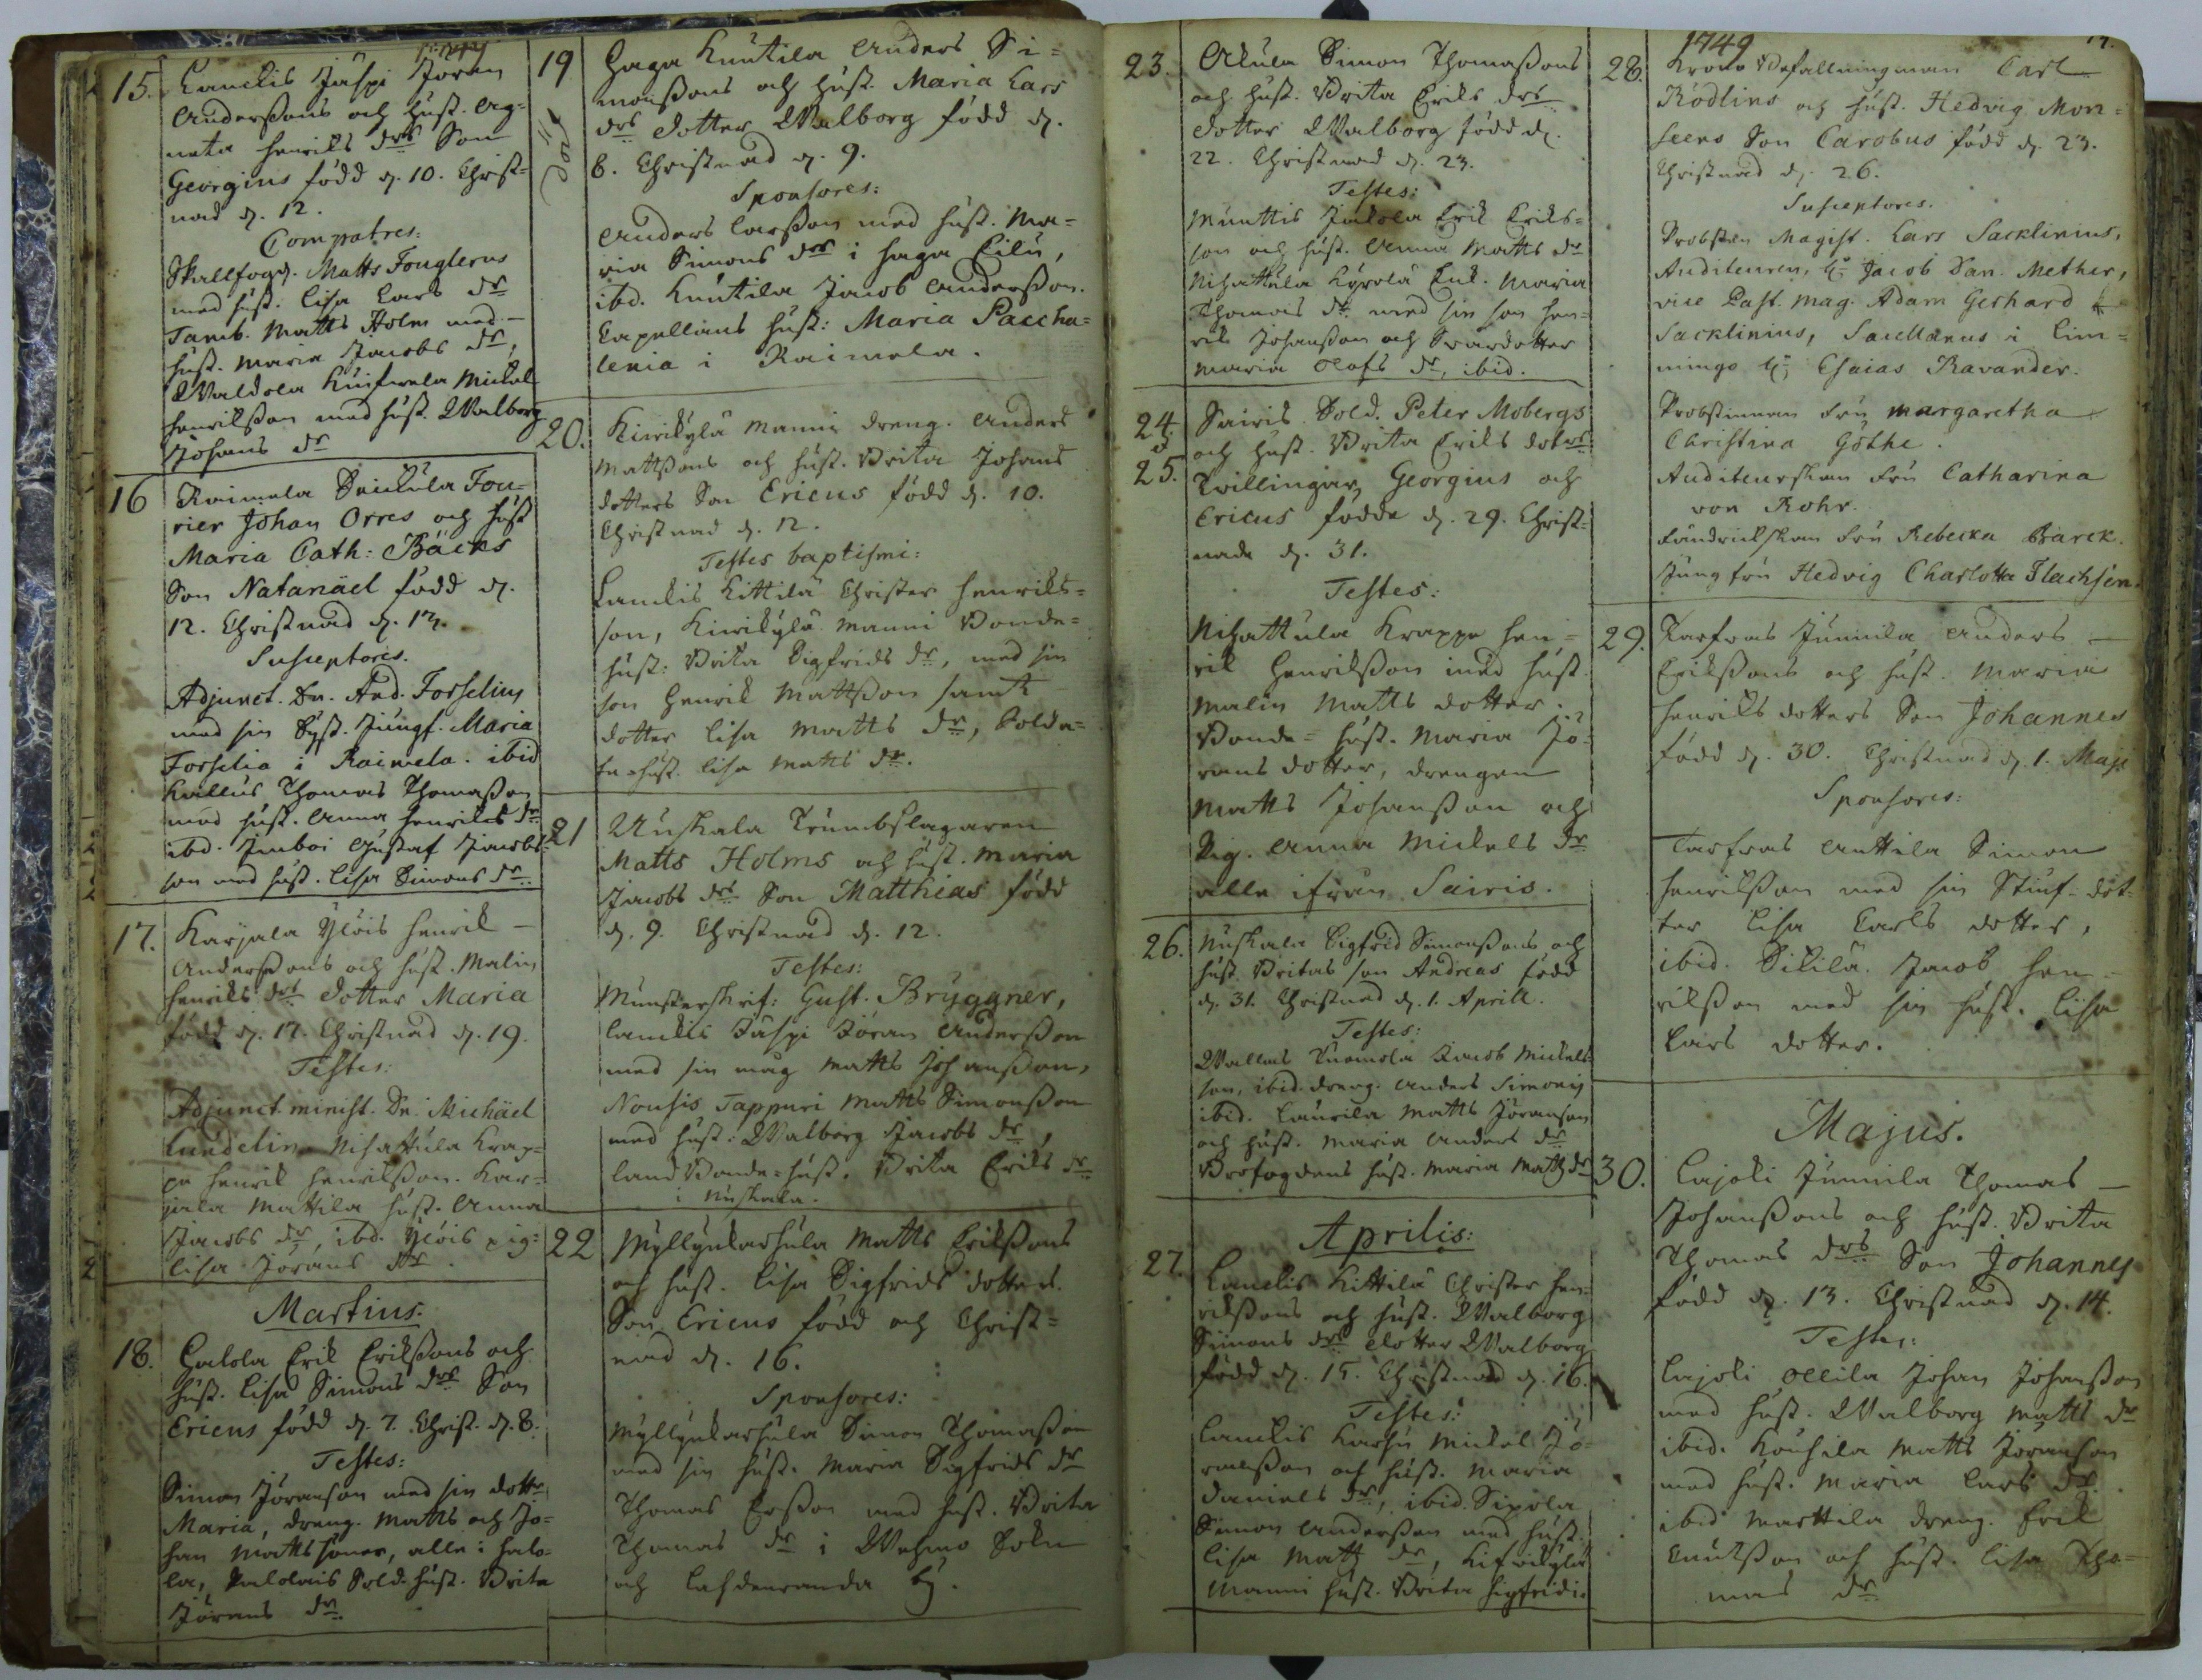 1749
15. Lanckis Jaspi Jöran
Anderßons och hust. Ag-
neta Henriks drs Son
Georgius född d. 10. Christ-
nad d. 12.
Compatres:
Skallfogd. Matts Fouglerus
med hust. Lisa Lars dr
Tamb. Matts Holm med
hust. Maria Jacobs dr,
Waldola Mickel
Henrikßon med hust. Walborg
Johans dr
16 Raimela Fou-
rier Johan Orres och hust
Maria Cath: Bäcks
Son Natanäel född d.
12. Christnad d. 13.
Susceptores.
Adjunct. Dn. And. Forselius
med sin Syst. Jungf. Maria
Forselia i Raimela. ibid
Kallus Thomas Thomaßon
med hust. Anna Henriks dr
ibd. Gustaf Jacobs-
son med hust. Lisa Simons dr.
17. Karjala Ylöis Henrik
Anderßons och hust. Malin
Henriks drs dotter Maria
född d. 17. Christnad d. 19.
Testes:
Adjunct. minist. Dn. Michäel
Lundelin Nihattula Krap-
pe Henrik Henrikßon. Kar-
jala Mattila hust. Anna
Jacobs dr, ibd. Ylöis pig:
Lisa Jörans dr.
Martius:
18. Halola Erik Erikßons och
hust. Lisa Simons drs Son
Ericus född d. 7. Christ. d. 8.
Testes:
Simon Jöranson med sin dottr
Maria, dreng. Matts och Jo-
han Matts söner, alle i Halo-
la, Sold. hust. Brita
Jörans dr.
19 Haga Knutila Anders Si-
monßons och hust. Maria Lars
drs dotter Walborg född d.
6. Christnad d. 9.
Sponsores:
Anders Larßon med hust. Ma-
ria Simons dr i Haga Eilu,
ibd. Knutila Jacob Anderßon.
Capellans hust: Maria Paccha-
lenia i Raimela.
20. Kirrikylä Manni dreng. Anders
Mattßons och hust. Brita Johans
dotters Son Ericus född d. 10.
Christnad d. 12.
Testes baptismi:
Lanckis Kittilä Christer Henriks-
son, Kirrikylä Manni Bonde-
hust: Brita Sigfrids dr, med sin
son Henrik Mattßon samt
dotter Lisa Matts dr, Solda-
te-hust. Lisa Matts dr.
21 Nuskala Trumbslagaren
Matts Holms och hust. Maria
Jacobs drs Son Matthias född
d. 9. Christnad d. 12.
Testes:
Munsterskrif: Gust. Bryggner,
Lanckis Jaspi Jöran Anderßon
med sin mag Matts Johanßon,
Nousis Tappuri Matts Simonßon
med hust: Walborg Jacobs dr,
land Bonde-hust. Brita Eriks dr
i Nuskala.
22 Myllynkarhula Matts Erikßons
och hust. Lisa Sigfrids dotters
Son Ericus född och Christ-
nad d. 16.
Sponsores:
Myllynkarhula Simon Thomaßon
med sin hust. Maria Sigfrids dr
Thomas Erßon med hust. Brita
Thomas dr i Wehmo Sokn
och Lahdenranda by.
23. Akula Simon Thomaßons
och hust. Brita Eriks drs
dotter Walborg född d.
22. Christnad d. 23.
Testes:
Munttis Jukola Erik Eriks-
son och hust. Anna Matts dr
Nihattula Kyrolä Enk. Maria
Thomas dr med sin son Hen-
rik Johanßon och Svärdotter
Maria Olofs dr, ibid.
24. & 25. Sairis Sold. Peter Mobergs
och hust. Brita Eriks dotrs
Tvillingar Georgius och
Ericus födde d. 29. Christ-
nade d. 31.
Testes:
Nihattula Krappe Hen-
rik Henrikßon med hust.
Malin Matts dotter.
Bonde-hust. Maria Jö-
rans dotter, drengen
Matts Johanßon och
Pig. Anna Mickels dr
alle ifrån Sairis.
26. Nuskala Sigfrid Simonßons och
hust. Britas son Andreas född
d. 31. Christnad d. 1. Aprill.
Testes:
Wallas Tuomola Jacob Mickels-
son, ibid. dreng. Anders Simonis
ibid. Laurila Matts Jöranson
och hust. Maria Anders dr
Brofogdens hust. Maria Matts dr
Aprilis:
27. Lanckis Kittilä Christer Hen-
rikßons och hust. Walborg
Simons drs dotter Walborg
född d. 15. Christnad d. 16.
Testes:
Lanckis Karhu Mickel Jö-
ranßon och hust. Maria
Daniels dr, ibid. Sipola
Simon Anderßon med hust.
Lisa Matts dr, Kirrikylä
Manni hust. Brita Sigfridi.
1749
28. Krono Befallningman Carl
Rödlins och hust. Hedvig Mon-
seens Son Carobus född d. 23.
Christnad d. 26.
Susceptores.
Probsten Magist. Lars Sacklinius,
Auditeuren, Hr Jacob Dan. Mether,
vice Past. Mag. Adam Gerhard
Sacklinius, Sacellanus i Lem-
mingo Hr Esaias Ravander.
Probstinnan Fru Margaretha
Christina Göthe.
Auditeurskan Fru Catharina
von Rohr.
Fändrickskan Fru Rebecka Barck.
Jungfru Hedvig Charlotta Flachsén.
29. Tarfvas Junnila Anders
Erikßons och hust. Maria
Henriks dotters Son Johannes
född d. 30. Christnad d. 1. Maji
Sponsores:
Tarfvas Anttila Simon
Henrikßon med sin Stiuf-dot-
ter Lisa Carls dotter,
ibid. Sikilä Jacob Hen-
rikßon med sin hust. Lisa
Lars dotter.
Majus.
30. Lajoki Junnila Thomas
Johanßons och hust. Brita
Thomas drs Son Johannes
född d. 13. Christnad d. 14.
Testes:
Lajoki Ollila Johan Johanßon
med hust. Walborg Matts dr
ibid. Kouhila Matts Jöranson
med hust. Maria Lars dr.
ibid Marttila dreng. Erik
Knutßon och hust. Lisa Tho-
mas dr